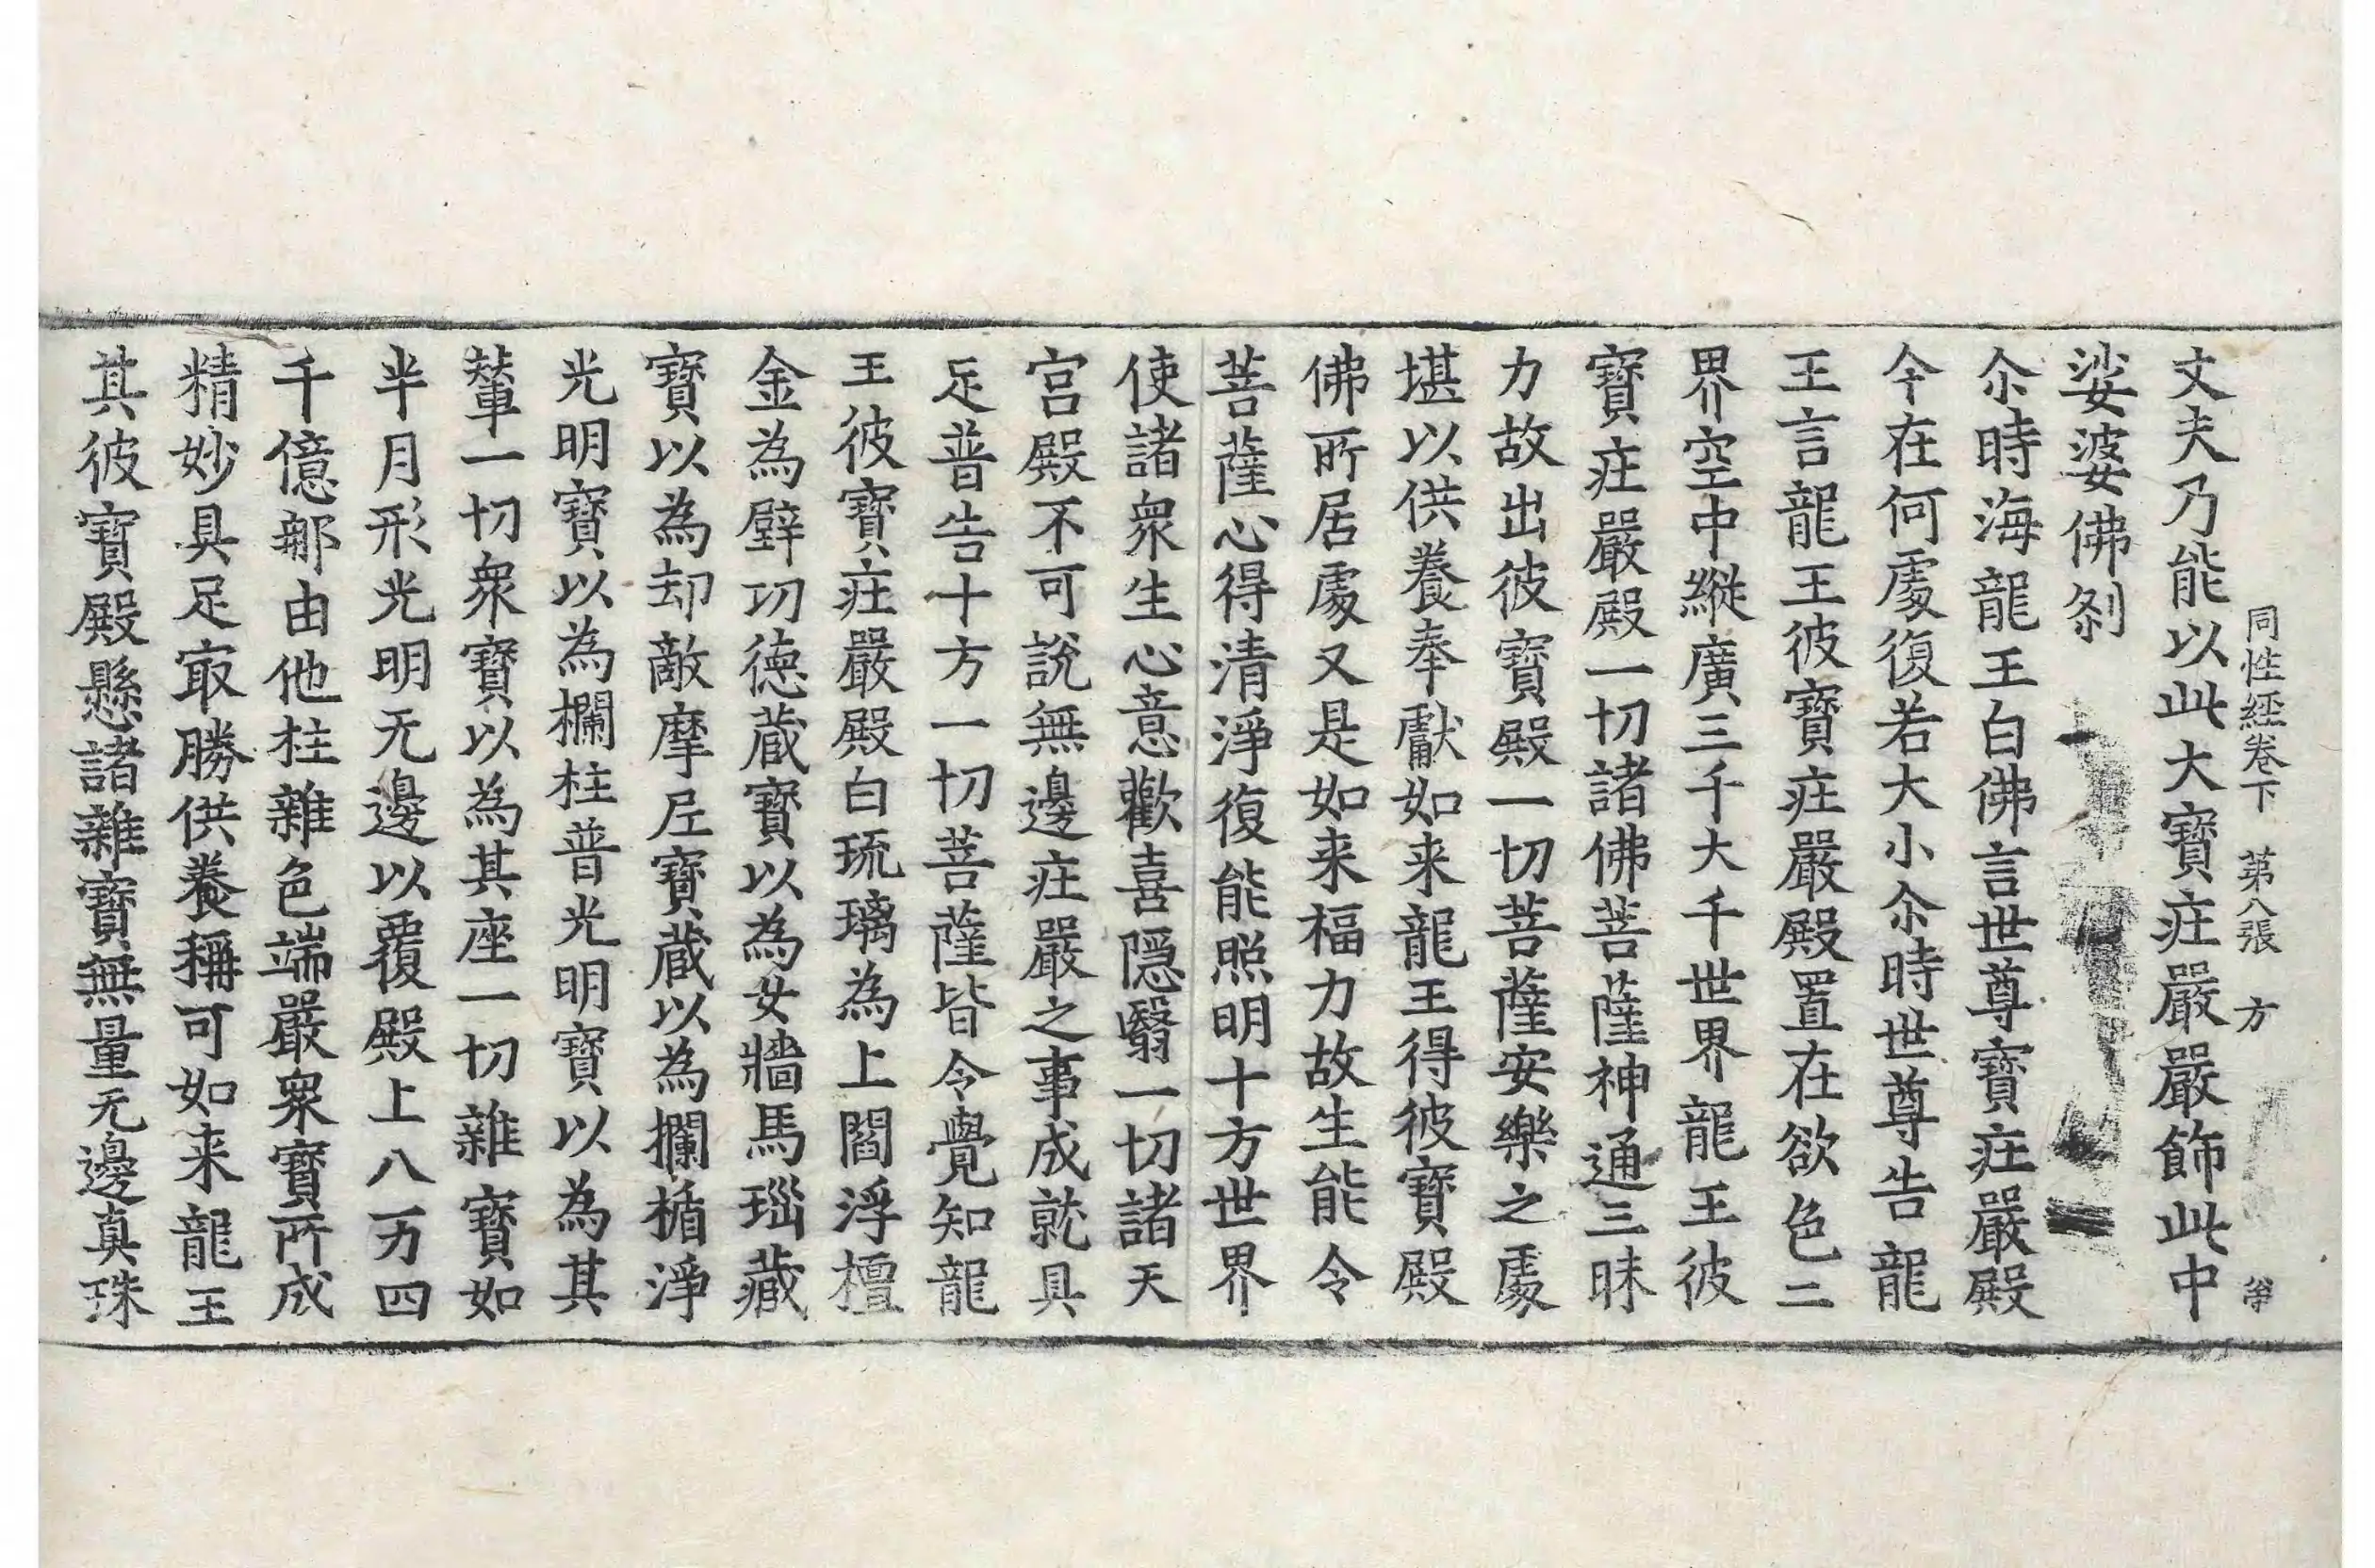 同性経卷下 第八張 方
丈夫乃能以此大寶庄嚴嚴飾此中
娑婆佛刹
尒時海龍王白佛言世尊寶庄嚴殿
今在何處復若大小尒時世尊告龍
王言龍王彼寶庄嚴殿置在欲色二
界空中縱廣三千大千世界龍王彼
寶庄嚴殿一切諸佛菩薩神通三昧
力故出彼寶殿一切菩薩安樂之處
堪以供養奉獻如来龍王得彼寶殿
佛所居處又是如来福力故生能令
菩薩心得清淨復能照明十方世界
使諸衆生心意歡喜隱翳一切諸天
宮殿不可說無邊庄嚴之事成就具
足普告十方一切菩薩皆令覺知龍
王彼寶庄嚴殿白琉璃為上閻浮檀
金為壁功德蔵寶以為女牆馬瑙蔵
寶以為却敵摩尼寶蔵以為欄楯淨
光明寶以為欄柱普光明寶以為其
輦一切衆寶以為其座一切雜寶如
半月形光明无邊以覆殿上八万四
千億那由他柱雜色端嚴衆寶所成
精妙具足冣勝供養稱可如来龍王
其彼寶殿懸諸雜寶無量无邊真珠